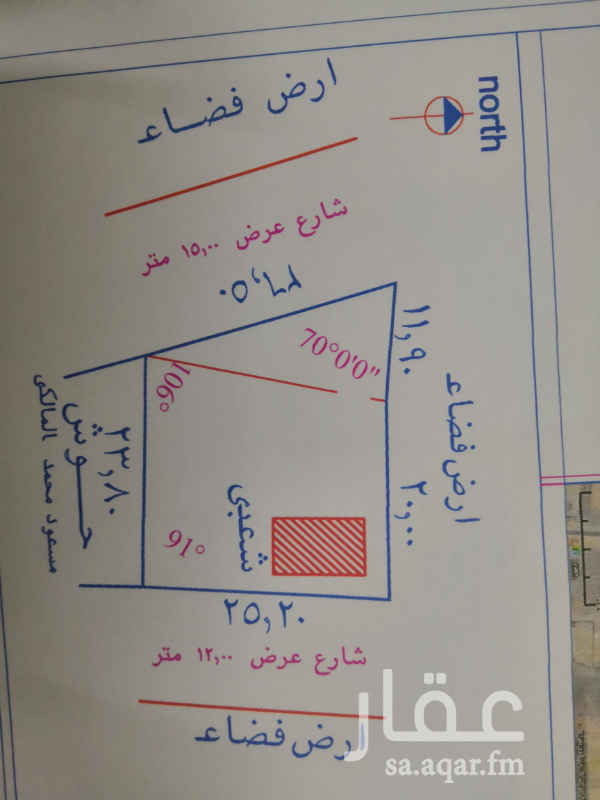 north
ارض فضاء
شارع عرض ١٥,٠٠ متر
٢٦,٥٠
70°0'0"
١١,٩٠
ارض فضاء
٢٠,٠٠
106°
٢٣,٨٠
حوش
مسعود محمد المالكي
91°
شعبي
٢٥,٢٠
شارع عرض ١٢,٠٠ متر
ارض فضاء
عقار
sa.aqar.fm